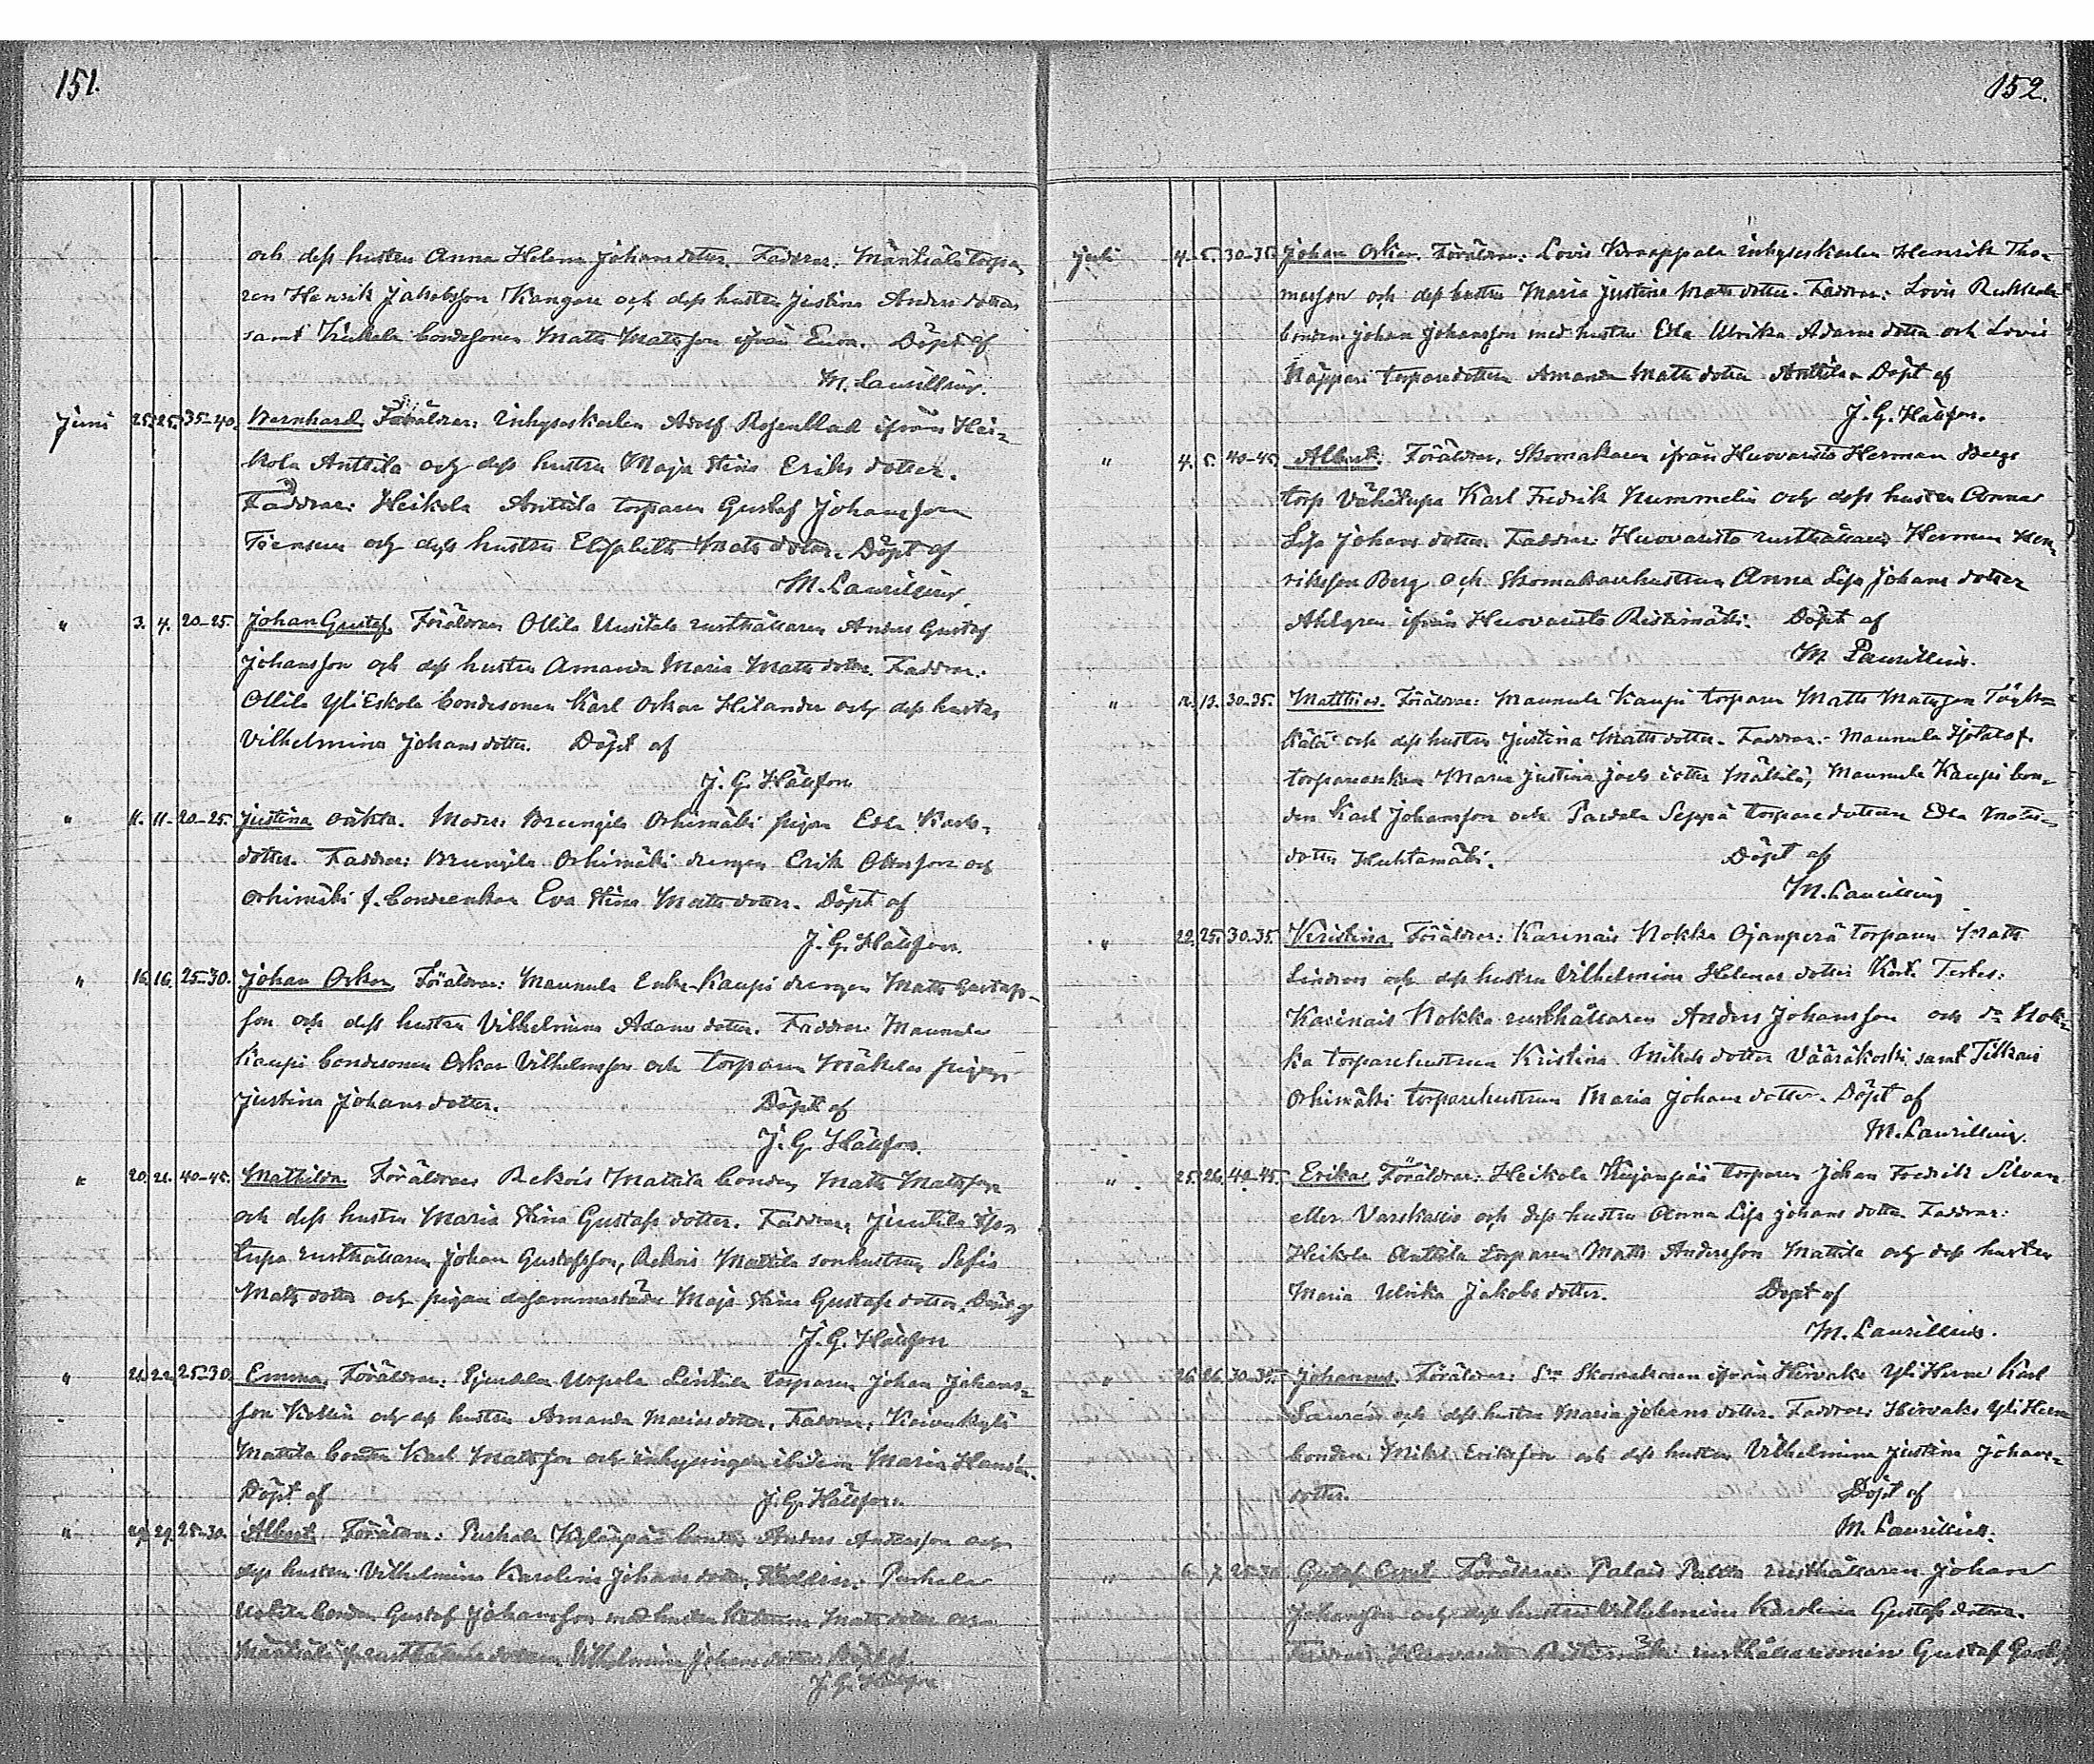 151.
och dess hustru Anna Helena Johans dotter. Faddrar: Mäntsälä torpa,
ren Henrik Jakobsson Kangare och dess hustru Justina Anders dotter
samt bondesonen Matts Matsson ifrån Eura. Döpt af
M. Laurillius.
Juni 25. 25. 35-40. Bernhard. Föräldrar: inhyseskarlen Adolf Rosenblad ifrån Hei-
kola Anttila och dess hustru Maja Stina Eriks dotter.
Faddrar: Heikola Anttila torparen Gustaf Johansson
och dess hustru Elisabeth Mats dotter. Döpt af
M. Laurillius.
" 3. 4. 20-25. Johan Gustaf. Föräldrar Ollila Uusitalo rusthållaren Anders Gustaf
Johansson och dess hustru Amanda Maria Matts dotter. Faddrar:
Ollila YliEskola bondesonen Karl Oskar Hilander och dess hustru
Vilhelmina Johans dotter. Döpt af
J. G. Hällfors.
" 11. 11. 20-25. Justina oäkta. Moder: Brungila Orhimäki pigan Edla Karls-
dotter. Faddrar: Brungila Orhimäki drengen Erik Ottosson och
Orhimäki f. bondeenkan Eva Stina Matts dotter. Döpt af
J. G. Hällfors.
" 16. 16. 25-30. Johan Oskar. Föräldrar: Maunula Kaupi drengen Matts Gustafs-
son och dess hustru Vilhelmina Adams dotter. Faddrar: Maunula
Kaupi bondesonen Oskar Vilhelmsson och torparen Mäkelas pigan
Justina Johans dotter. Döpt af
J. G. Hällfors.
" 20. 21. 40-45. Mathilda. Föräldrar Rekois Mattila bonden Matts Matsson
och dess hustru Maria Stina Gustafs dotter. Faddrar,
rusthållaren Johan Gustafsson, Rekois Mattila sonhustrun Sofia
Mats dotter och pigan dersammastädes Maja Stina Gustafs dotter. Döpt af
J. G. Hällfors
" 21. 22. 25-30. Emma. Föräldrar: Uspela torparen Johan Johans-
son och dess hustru Amanda Marias dotter. Faddrar:
Mattila bonden Karl Matsson och ibidem Maria
Döpt af J. G. Hällfors.
" 29. 29. 25-30. Albert. Föräldrar: Puskala Kylänpää bonden Anders Andersson och
dess hustru Vilhelmina Karolina Johans dotter. Faddrar: Puskala
bonden Gustaf Johansson med hustru Matts dotter och
Mäntsälä dottern Vilhelmina Johans dotter Döpt af
J. G. Hällfors
152.
Juli 4. 5. 30-35. Johan Oskar. Föräldrar: Lovis Knappala inhyseskarlen Henrik Tho-
masson och dess hustru Maria Justina Matts dotter. Faddrar: Lovis
bonden Johan Johansson med hustru Edla Ulrika Adams dotter och Lovis
Näppari torparedottern Amanda Matts dotter Anttila. Döpt af
J. G. Hällfors.
" 4. 5. 40-45 Albert. Föräldrar, Skomakaren ifrån Huovaristo Herman Bergs
torp Vähätupa Karl Fredrik Nummelin och dess hustru Anna
Lisa Johans dotter. Faddrar: Huovaristo rusthållaren Herman Hen-
riksson Berg och Skomakarehustrun Anna Lisa Johans dotter
Ahlgren ifrån Huovaristo Ristimäki. Döpt af
M. Laurillius.
" 12. 13. 30-35. Matthias. Föräldrar: Maunula Kaupi torparen Matts Matsson
och dess hustru Justina Matts dotter. Faddrar: Maunula
torpareenkan Maria Justina Jacobs dotter Mäkilä, Maunula Kaupi bon-
den Karl Johansson och Pardala Seppä torparedottern Edla Mats-
dotter Huhtamäki. Döpt af
M. Laurillius
" 22. 25. 30-35. Kristina. Föräldrar: Karinais Nokka Ojanperä torparen Matts
Lindroos och dess hustru Vilhelmina Helenas dotter Testes:
Karinais Nokka rusthållaren Anders Johansson och Nok-
ka torparehustrun Kristina Mikels dotter Vääräkoski samt
Orhimäki torparehustrun Maria Johans dotter. Döpt af
M. Laurillius.
" 25. 26. 40-45. Erika. Föräldrar: Heikola Kujanpää torparen Johan Fredrik Silvan
eller Varskallio och dess hustru Anna Lisa Johans dotter Faddrar:
Heikola Anttila torparen Matts Andersson Mattila och dess hustru
Maria Ulrika Jakobs dotter. Döpt af
M. Laurillius.
" 26. 26. 30-35. Johannes. Föräldrar: Skomakaren ifrån Hirvaks YliHerne Karl
och dess hustru Maria Johans dotter. Faddrar: Hirvaks YliHerne
bonden Mikel Eriksson och dess hustru Vilhelmina Justina Johans-
dotter. Döpt af
M. Laurillius.
" 6. 7. 25-30 Gustaf Föräldrar: Palais Paltta rusthållaren Johan
Johansson och dess hustru Vilhelmina Karolina Gustafs dotter.
Faddrar, Huovaristo Ristimäki rusthållaresonen Gustaf